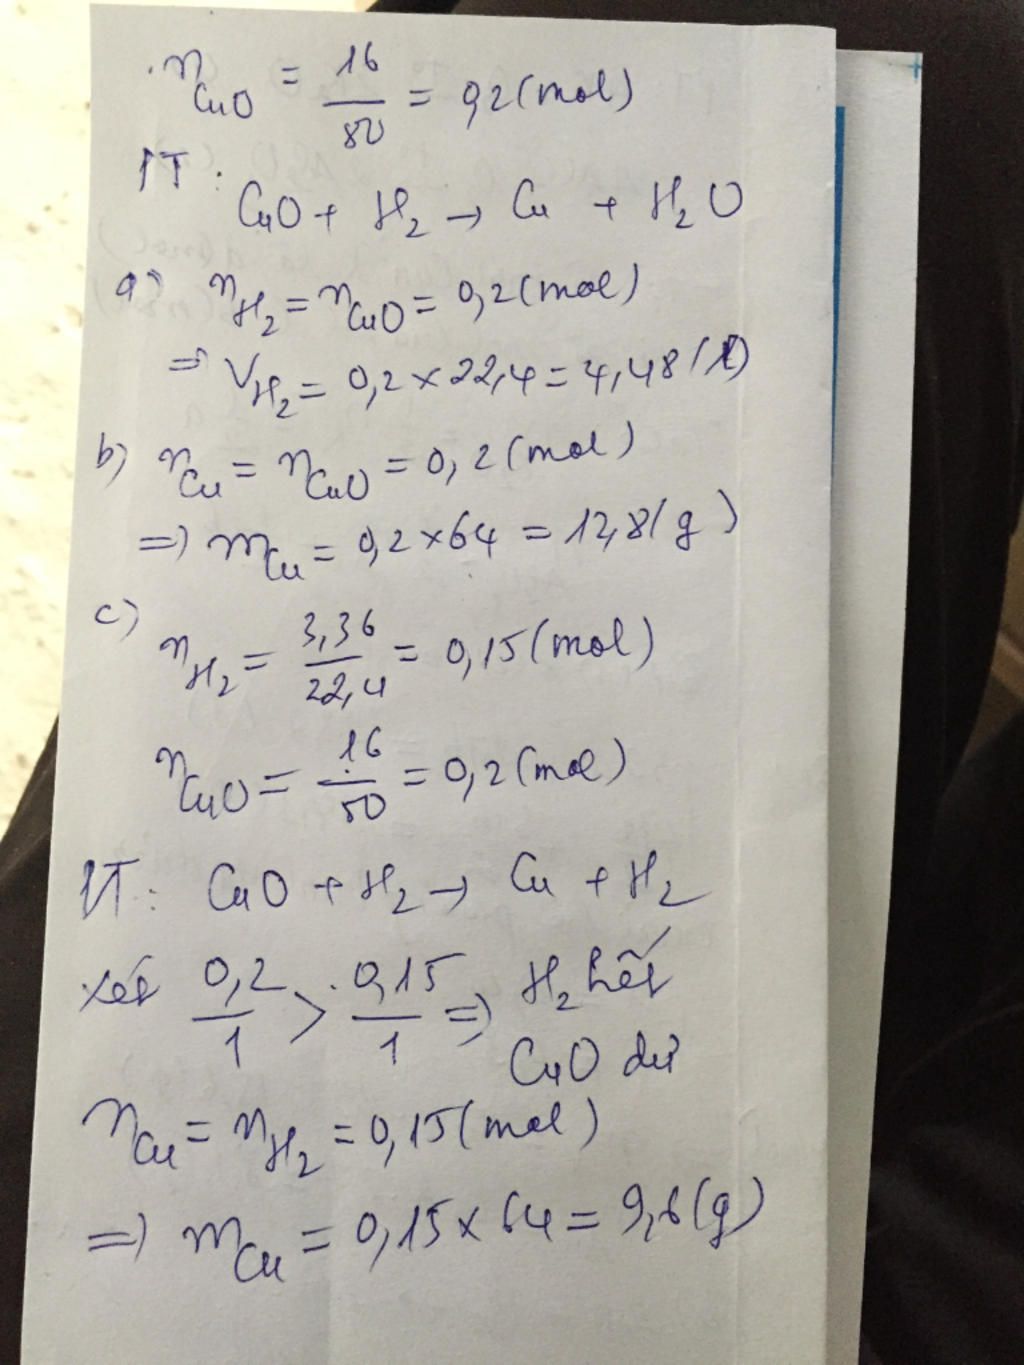 n_CuO = 16/80 = 0,2 (mol)
PT:
CuO + H₂ → Cu + H₂O
a) n_H₂ = n_CuO = 0,2 (mol)
⇒ V_H₂ = 0,2 × 22,4 = 4,48 (l)
b) n_Cu = n_CuO = 0,2 (mol)
⇒ m_Cu = 0,2 × 64 = 12,8 (g)
c) n_H₂ = 3,36/22,4 = 0,15 (mol)
n_CuO = 16/80 = 0,2 (mol)
PT: CuO + H₂ → Cu + H₂
xét 0,2/1 > 0,15/1 ⇒ H₂ hết
CuO dư
n_Cu = n_H₂ = 0,15 (mol)
⇒ m_Cu = 0,15 × 64 = 9,6 (g)